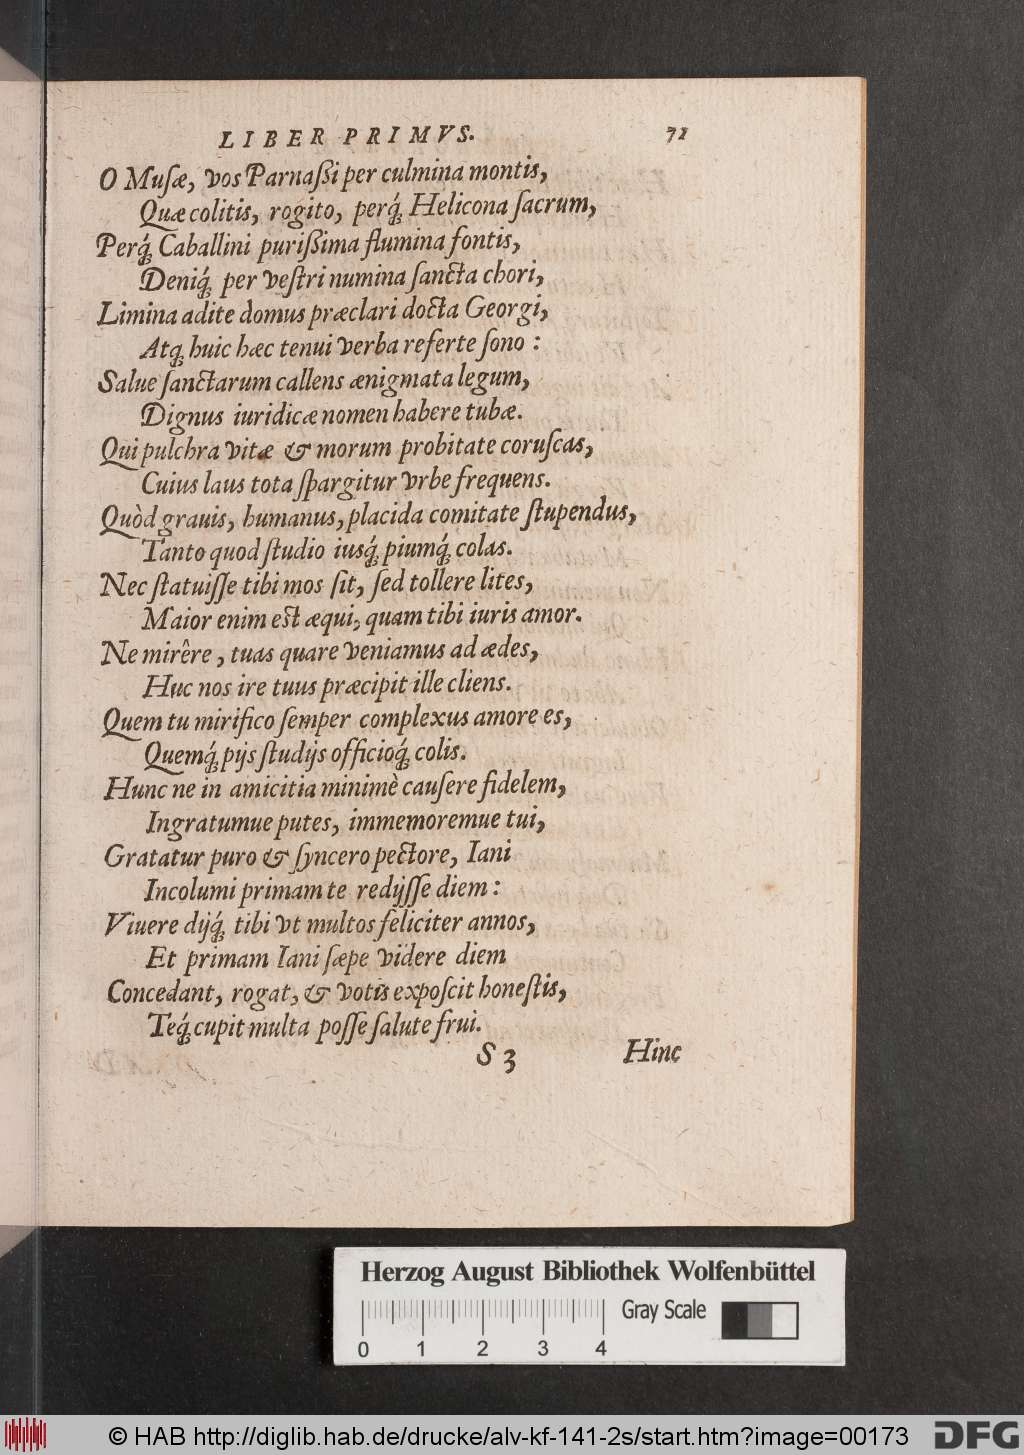 LIBER PRIMVS. 71
O Muſæ, vos Parnaßi per culmina montis,
Quæ colitis, rogito, perq́; Helicona ſacrum,
Perq́; Caballini purißima flumina fontis,
Deniq́; per veſtri numina ſancta chori,
Limina adite domus præclari docta Georgi,
Atq; huic hæc tenui verba referte ſono :
Salue ſanctarum callens ænigmata legum,
Dignus iuridicæ nomen habere tubæ.
Qui pulchra vitæ & morum probitate coruſcas,
Cuius laus tota ſpargitur vrbe frequens.
Quòd grauis, humanus, placida comitate ſtupendus,
Tanto quod ſtudio iusq́; piumq́; colas.
Nec ſtatuiſſe tibi mos ſit, ſed tollere lites,
Maior enim est æqui, quam tibi iuris amor.
Ne mirêre, tuas quare veniamus ad ædes,
Huc nos ire tuus præcipit ille cliens.
Quem tu mirifico ſemper complexus amore es,
Quemq́; pijs ſtudijs officioq́; colis.
Hunc ne in amicitia minimè cauſere fidelem,
Ingratumue putes, immemoremue tui,
Gratatur puro & ſyncero pectore, Iani
Incolumi primam te redijſſe diem :
Viuere dijq́; tibi vt multos feliciter annos,
Et primam Iani ſæpe videre diem
Concedant, rogat, & votis expoſcit honeſtis,
Teq́; cupit multa poſſe ſalute frui.
S 3 Hinc
Herzog August Bibliothek Wolfenbüttel
Gray Scale
0 1 2 3 4
© HAB http://diglib.hab.de/drucke/alv-kf-141-2s/start.htm?image=00173
DFG